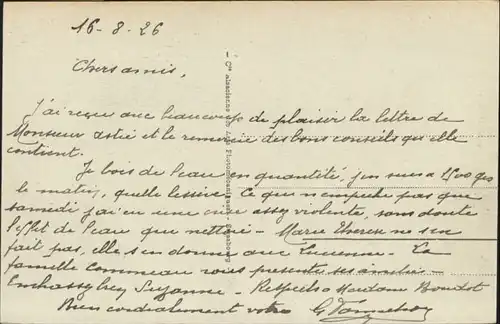 16-8-26
Chers amis,
J'ai reçue avec beaucoup de plaisir la lettre de
Monsieur et le remercie des bons conseils qu'elle
contient.
Je bois de l'eau en quantité, j'en suis a 1500 grs
le matin, quelle lessive. Ce qui n'empêche pas que
samedi j'ai eu une crise assez violente, sans doute
l'effet de l'eau que nettoie - Marie Thérèse ne s'en
fait pas, elle s'en donne avec Lucienne - La
famille Commeau vous présente ses amitiés -
Embrassez Suzanne - Respects a Madame Boudot
Bien cordialement votre G.